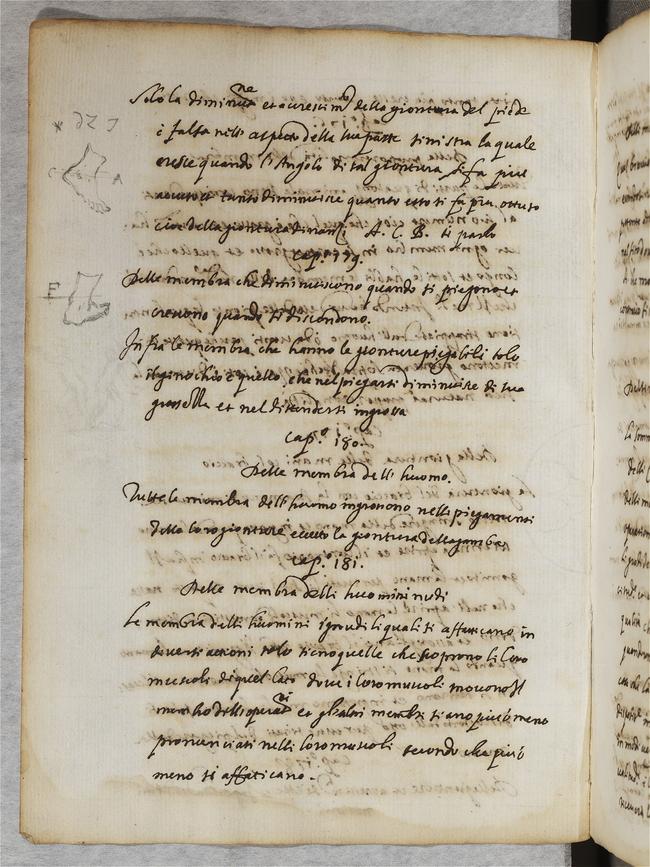 Solo la diminutne et accrescimto della giontura del piede
è falta nello aspecto della sua parte sinistra la quale
cresce quando l'Angolo di tal giontura si fa piu
acuto et tanto diminuisce quanto esso si fa piu ottuso
cioè della giontura dinanzi A. C. B. si parla
Cap.º 179.
Delle membra che diminuiscono quando si piegono et
crescono quando si distendono.
Infra le membra, che hanno le gionture piegabili solo
il ginochio è quello, che nel piegarsi diminuisce di sua
grossezza et nel distendersi ingrossa
Cap.º 180.
Delle membra dell' huomo.
Tutte le membra dell' huomo ingrossono nelli piegamenti
delle loro gionture eccetto la giontura della gamba
Cap.º 181.
Delle membra delli huomini nudi
Le membra delli huomini ignudi li quali si affaticano in
diversi actioni solo sieno quelle che scoprono li loro
muscoli di quel lato dove i loro muscoli movono il
membro dell'operatni et gli altri membri siano più ò meno
pronunciati nelli loro muscoli secondo che più ò
meno si affaticano.
A
E